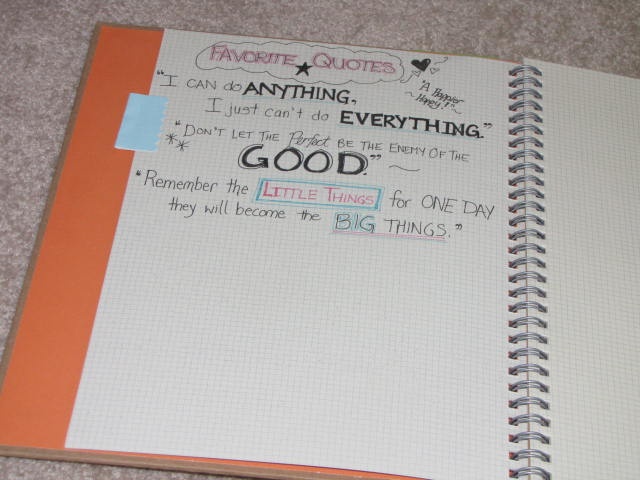 FAVORITE QUOTES
"A Happier
"I CAN do ANYTHING,
I just can't do EVERYTHING."
"DON'T LET THE Perfect BE THE ENEMY OF THE
GOOD."
"Remember the LITTLE THINGS for ONE DAY
they will become the BIG THINGS."